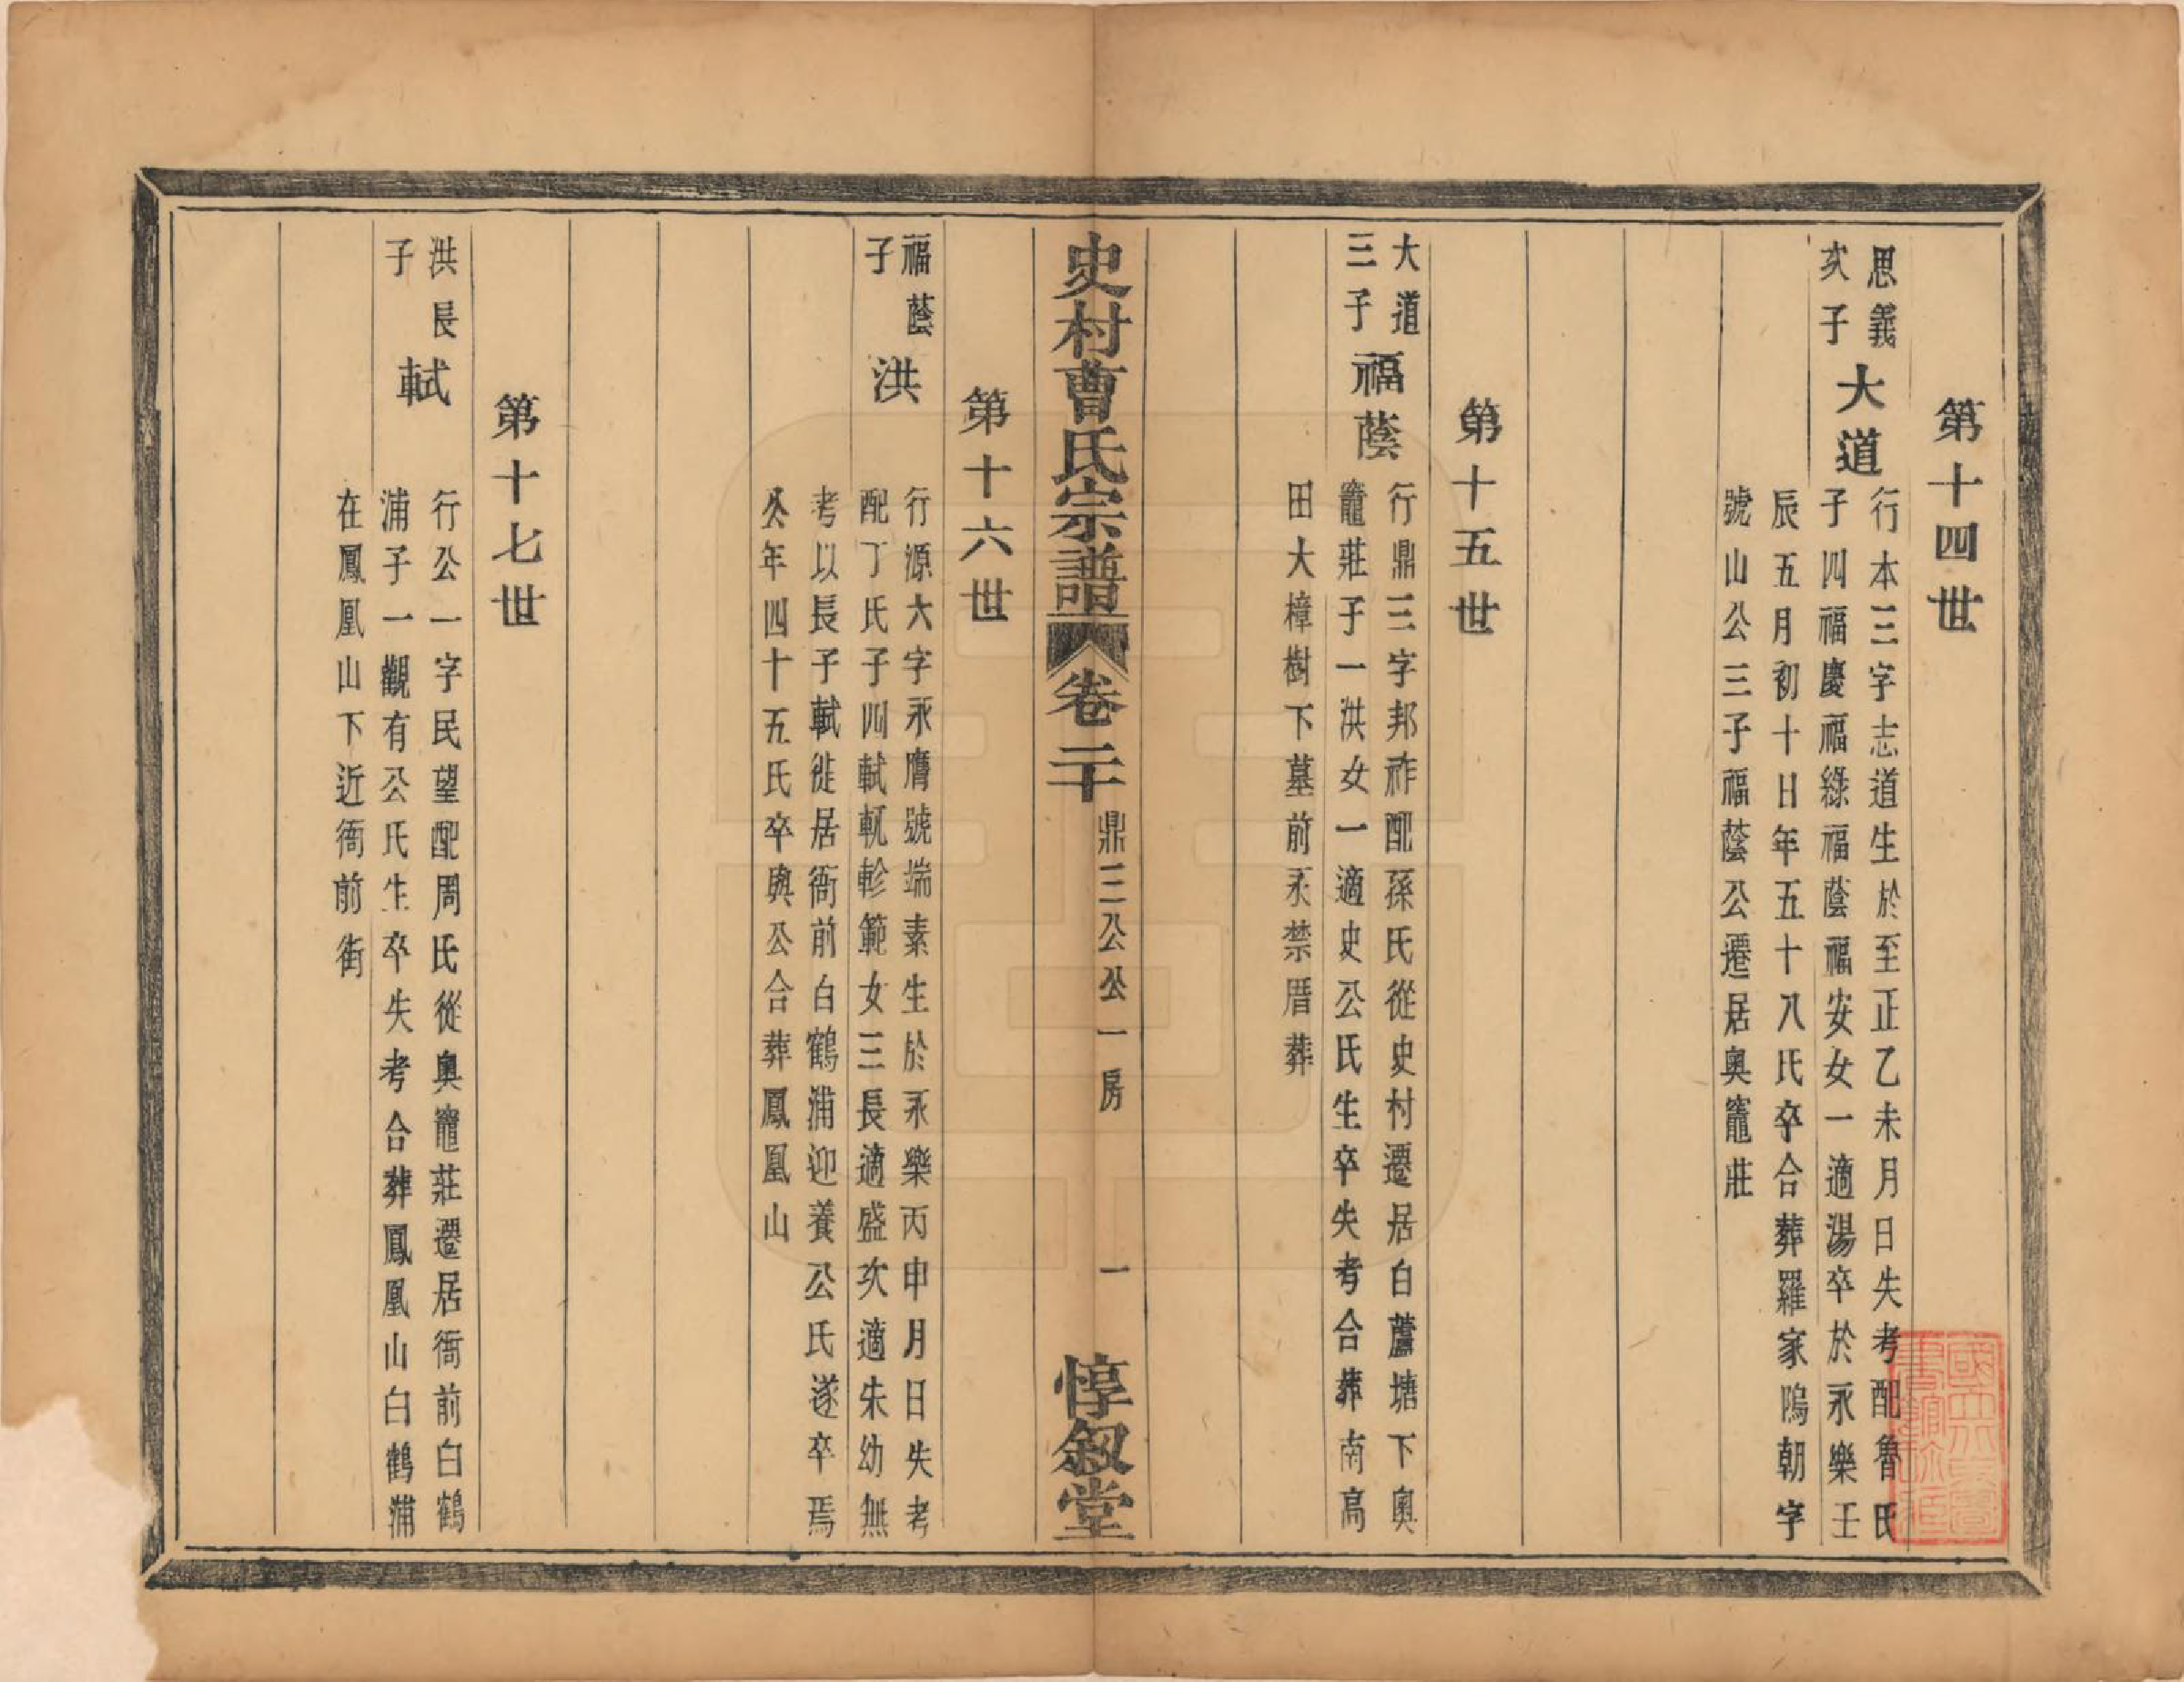 第十四世
思義
次子
大道
行本三字志道生於至正乙未月日失考配魯氏
子四福慶福緣福蔭福安女一適湯卒於永樂壬
辰五月初十日年五十八氏卒合葬羅家塢朝字
號山公三子福蔭公遷居奧竈莊
第十五世
大道
三子
福蔭
行鼎三字邦祚配孫氏從史村遷居白蘆塘下奧
竈莊子一洪女一適史公氏生卒失考合葬南高
田大樟樹下墓前永禁厝葬
史村曹氏宗譜
卷二十
鼎三公公一房
一
惇叙堂
第十六世
福蔭
子
洪
行源六字永膺號端素生於永樂丙申月日失考
配丁氏子四軾軏軫範女三長適盛次適朱幼無
考以長子軾徙居衙前白鶴浦迎養公氏遂卒焉
公年四十五氏卒與公合葬鳳凰山
第十七世
洪長
子
軾
行公一字民望配周氏從奧竈莊遷居衙前白鶴
浦子一觀有公氏生卒失考合葬鳳凰山白鶴浦
在鳳凰山下近衙前街